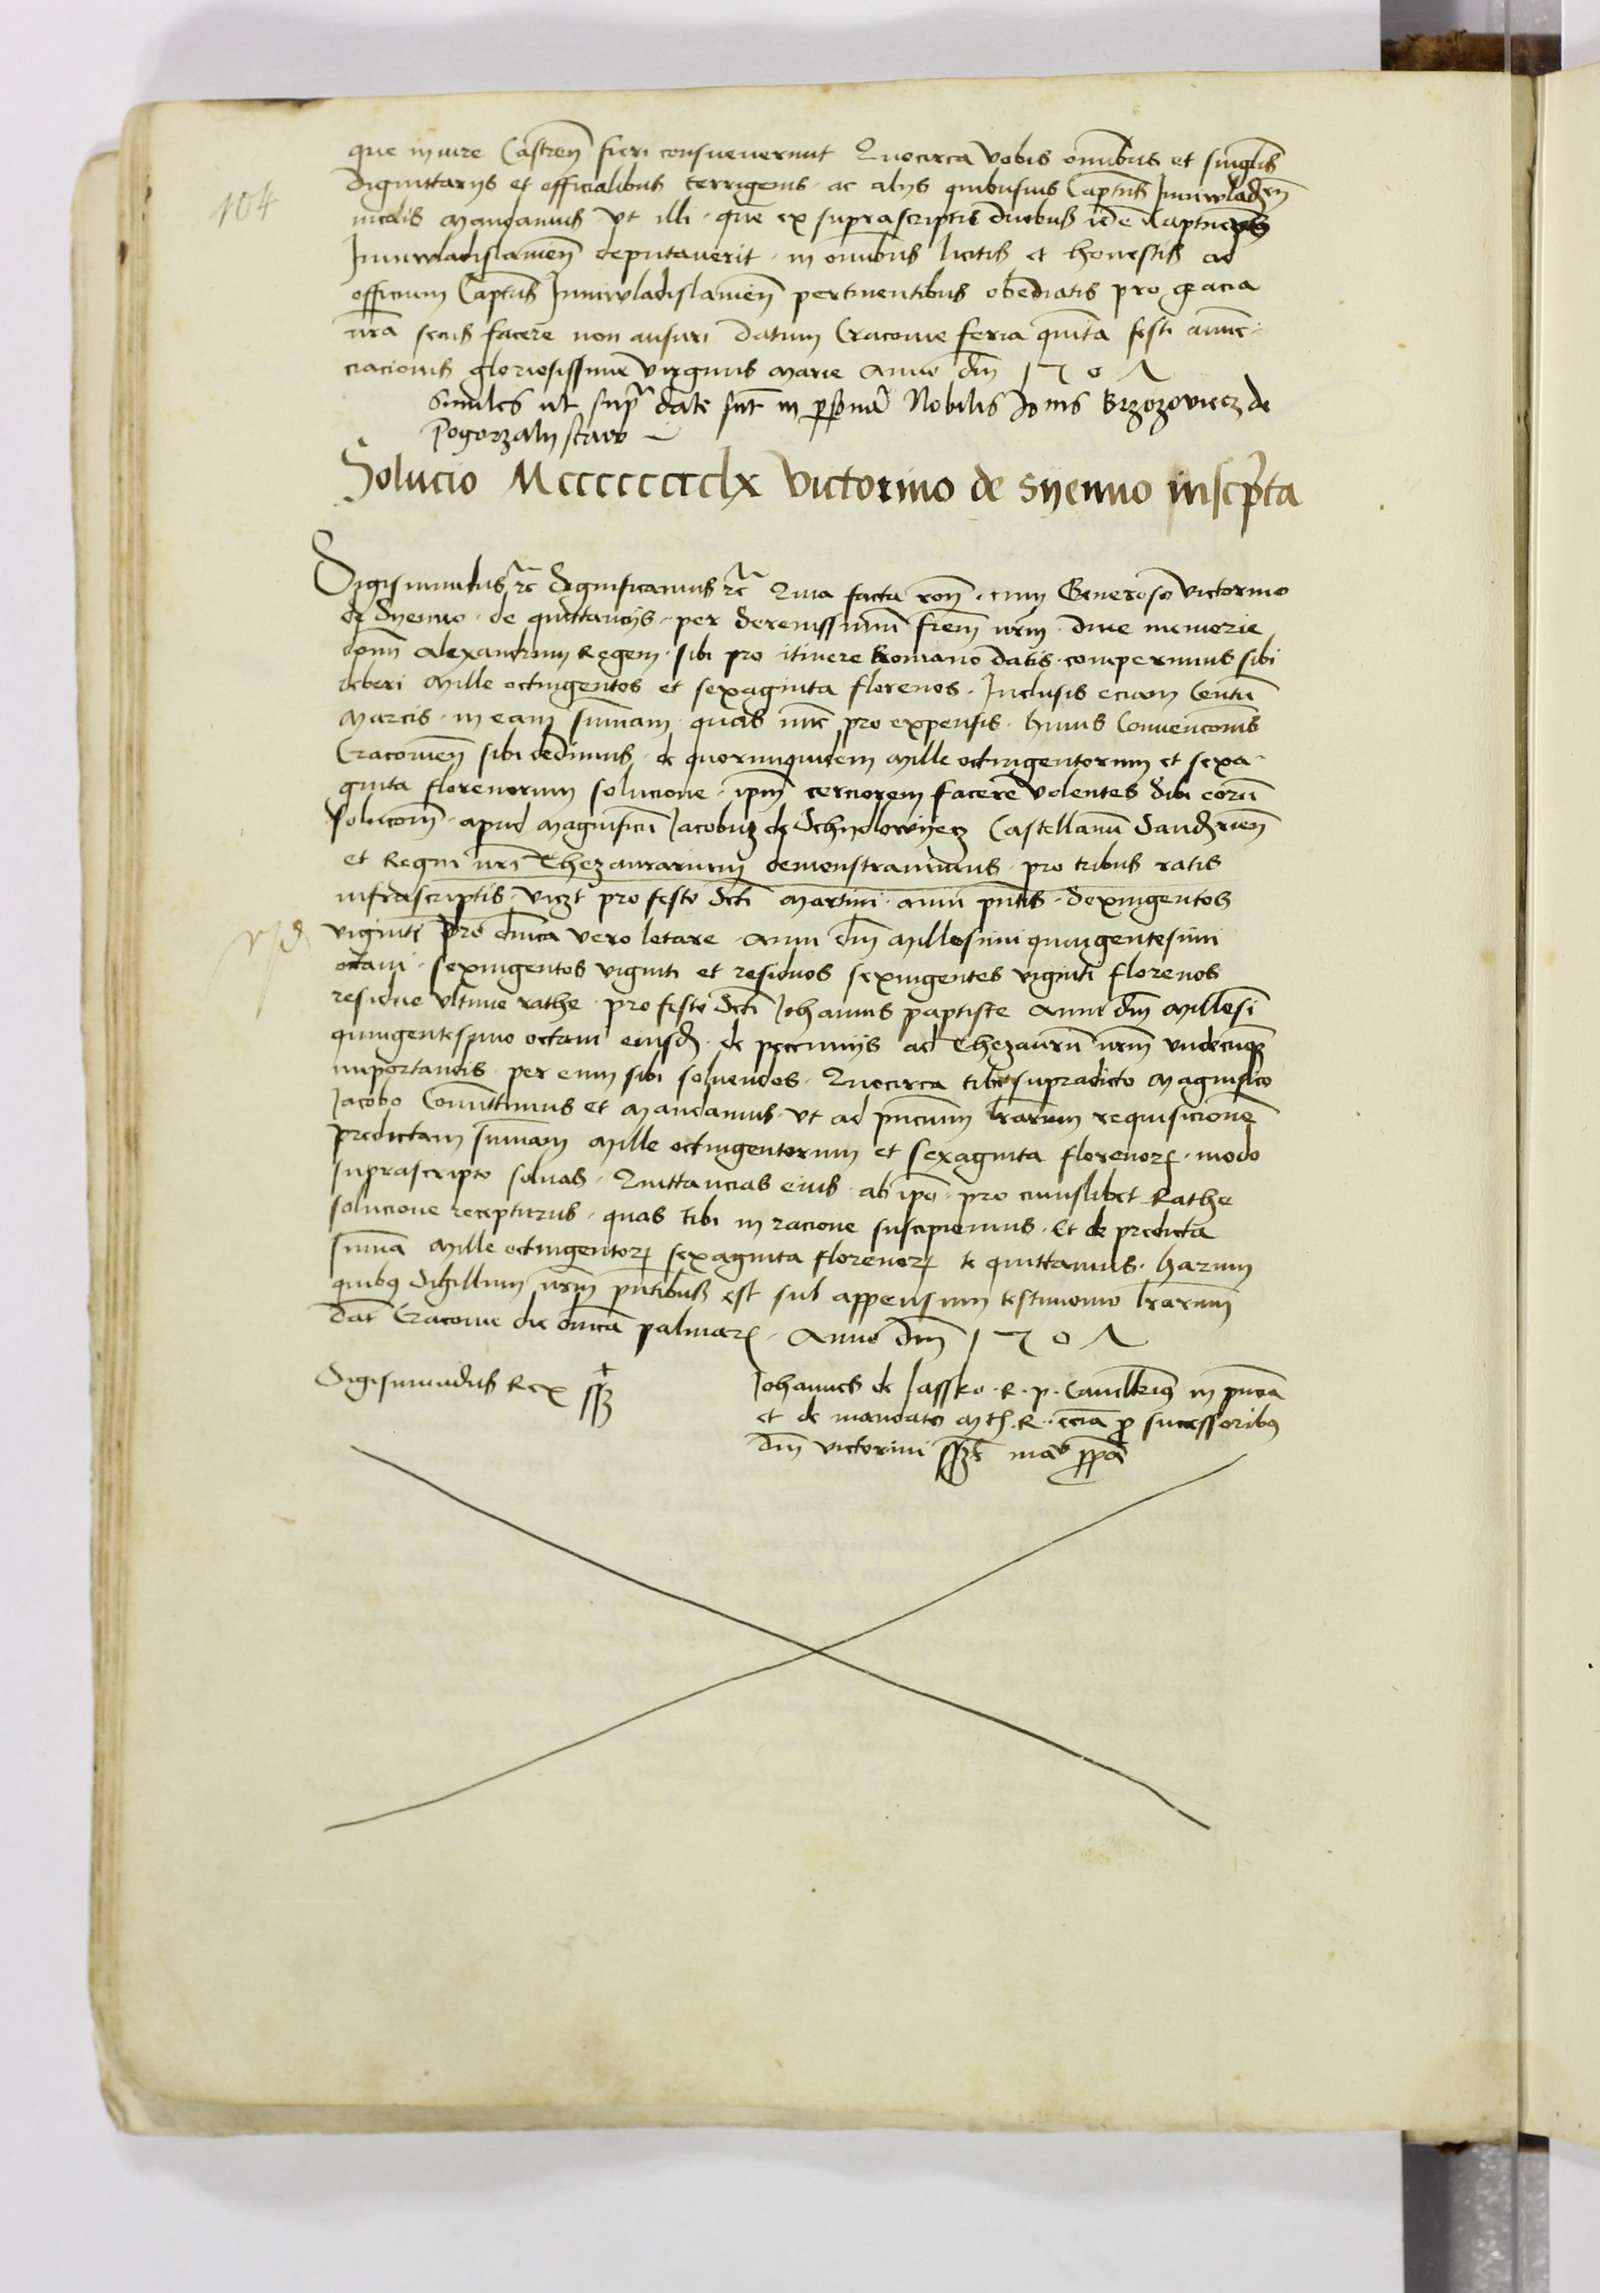 104
que in iure Castren fieri consueuerunt Quocirca vobis omnibus et singulis
dignittarijs et officialibus terrigenis ac alijs quibusuis Captus Juniwladn
incolis mandamus vt illi que ex suprascriptis duobus idem Captneus
Juniwladislauien deputauerit in omnibus licitis et honestis ad
officium Captus Juniwladislauien pertinentibus obediatis pro gracia
nra secus facere non ausuri datum Cracouie feria quinta festi annc-
ciacionis gloriosissime virginis marie Anno dm 1507
Similes ut supra date sunt in personam Nobilis Jonis Brzozoviecz de
Pogorzaly staw
Solucio Mcccccccclx victorino de Syenno inscpta
Sigismundus rc Significamus rc Quia facta ron cum Generoso victorino
de Syenno de quittancijs per Serenissimu frem nrm diue memorie
dpnm Alexandrum Regem sibi pro itinere Romano datis comperimus sibi
deberi mille octingentos et sexaginta florenos Inclusis eciam Centu
marcis in eam sumam quas nunc pro expensis huius Conuenconis
Cracouien sibi dedimus de quorumquidem mille octingentorum et sexa-
ginta florenorum solucione ipm cerciorem facere volentes Sibi eoru
solucom apud magnificu Jacobu de Schydlowyecz Castellanu Sandrien
et Regni nri Thezaurarium demonstrauimus pro tribus ratis
infrascriptis vicz pro festo Scti martini anni pntis Sexingentos
viginti pro dnica vero letare anni dm millesimi quingentesimi
octaui sexingentos viginti et residuos sexingentos viginti florenos
residue vltime rathe pro festo Scti Johannis paptiste Anni dm millesi
quingentesimo octaui eiusd de peccunijs ad Thezauru nrm vndecunq
importandis per eum sibi soluendos Quocirca tibi supradicto magnifico
Jacobo Comittimus et mandamus vt ad pncium lrarum requisicione
predictam sumam mille octingentorum et sexaginta florenor modo
suprascripto soluas Quittancias eius ab ipo pro cuiuslibet Rathe
solucione recepturus quas tibi in racione suscipiemus Et de predicta
suma mille octingentor sexaginta florenor te quittamus harum
quibus Sigillum nrm pntibus est sub appensum testimonio lrarum
dat Cracouie die dnica palmar Anno dm 1507
Sigismundus Rex ssz
Johannes de Lassko R p Cancllrius in pncia
et de mandato mth R eciam pro successoribus
dm victorini sszt manu ppa